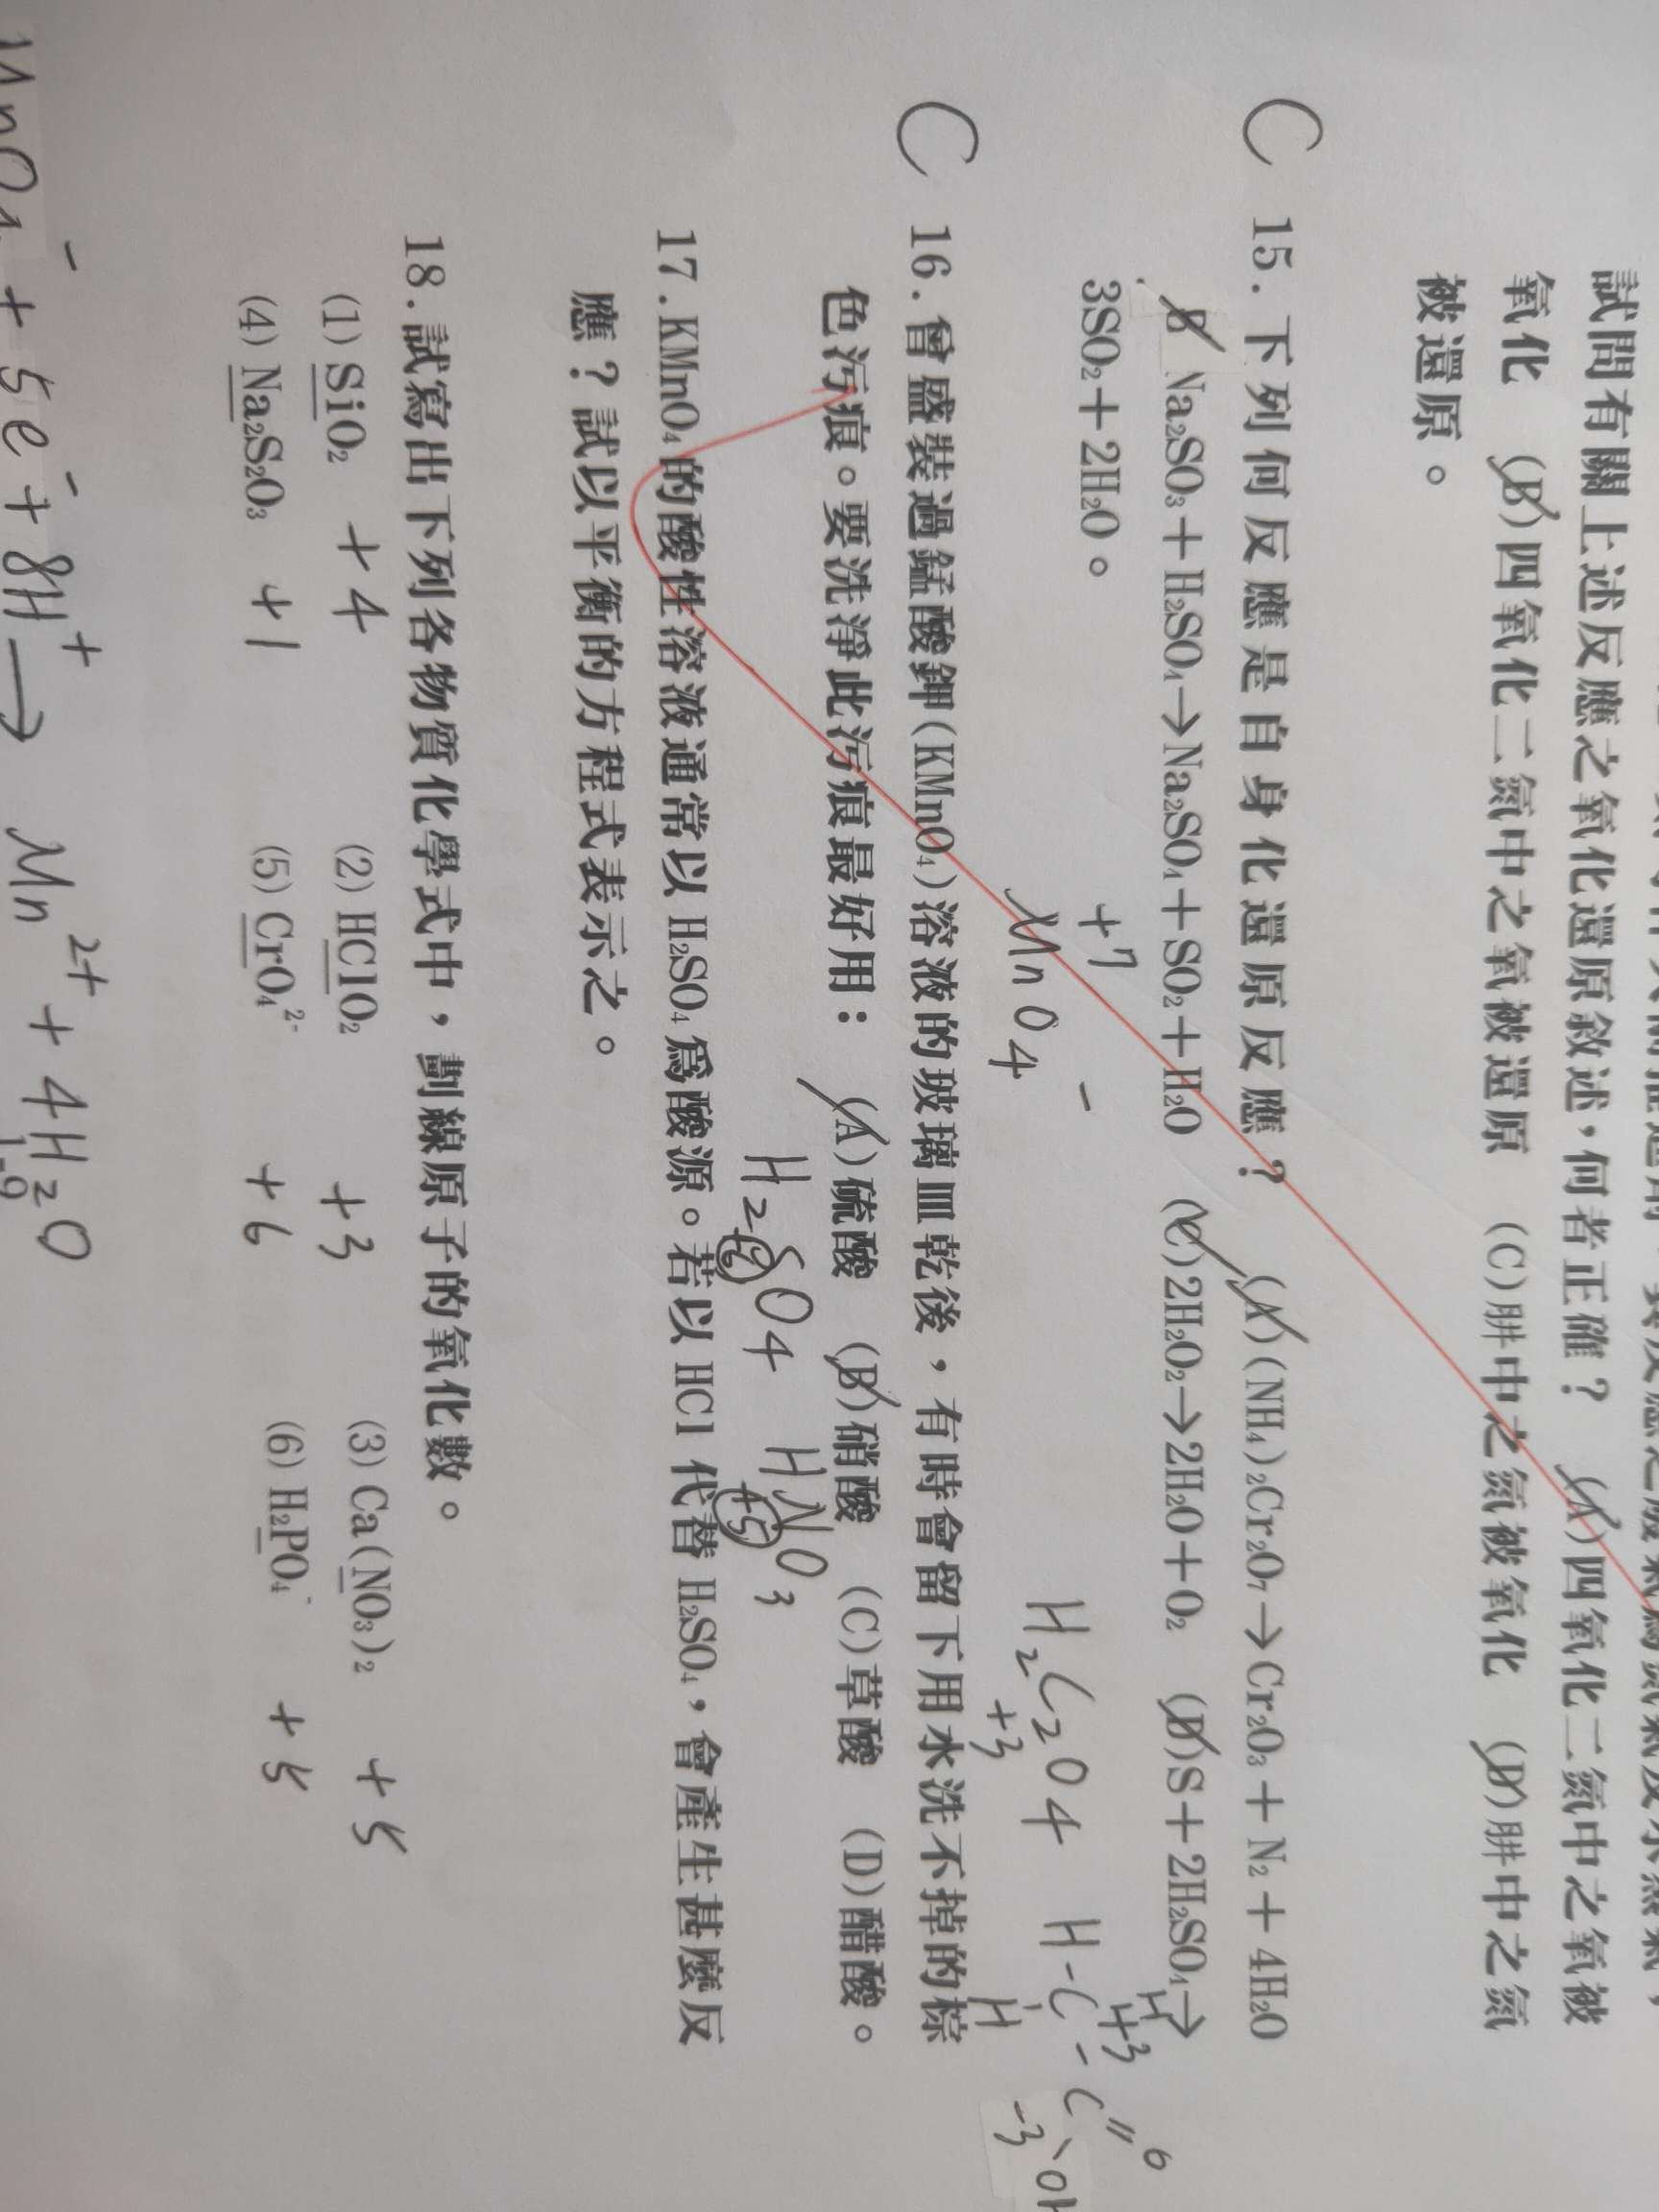 試問有關上述反應之氧化還原敘述,何者正確? (A)四氧化二氮中之氧被
氧化 (B)四氧化二氮中之氧被還原 (C)肼中之氮被氧化 (D)肼中之氮
被還原。
C 15. 下列何反應是自身氧化還原反應? (A)(NH₄)₂Cr₂O₇→Cr₂O₃+N₂+4H₂O
B Na₂SO₃+H₂SO₄→Na₂SO₄+SO₂+H₂O (C)2H₂O₂→2H₂O+O₂ (D)S+2H₂SO₄→
3SO₂+2H₂O。
+7
MnO₄⁻
H₂C₂O₄
+3
H-C-C
H
H
+3
-3
OH
C 16. 曾盛裝過錳酸鉀(KMnO₄)溶液的玻璃皿乾後,有時會留下用水洗不掉的棕
色污痕。要洗淨此污痕最好用: (A)硫酸 (B)硝酸 (C)草酸 (D)醋酸。
H₂SO₄ HNO₃
+6 +5
17. KMnO₄的酸性溶液通常以H₂SO₄為酸源。若以HCl代替H₂SO₄,會產生甚麼反
應?試以平衡的方程式表示之。
18. 試寫出下列各物質化學式中,劃線原子的氧化數。
(1) SiO₂ +4 (2) HClO₂ +3 (3) Ca(NO₃)₂ +5
(4) Na₂S₂O₃ +1 (5) CrO₄²⁻ +6 (6) H₂PO₄⁻ +5
MnO₄⁻ + 5e⁻ + 8H⁺ → Mn²⁺ + 4H₂O